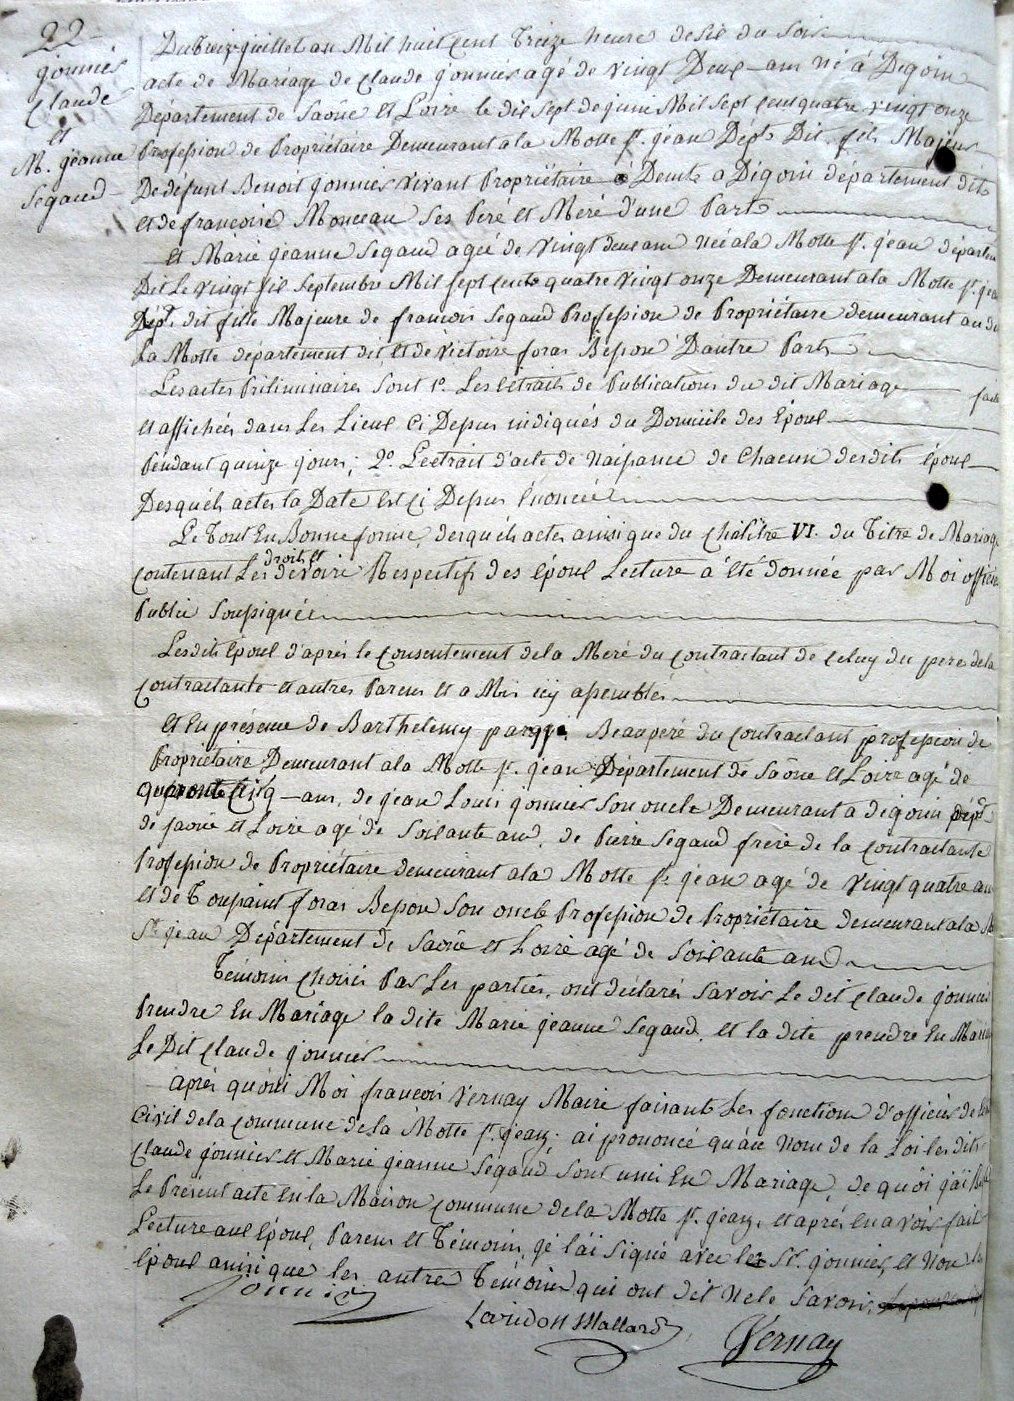 22
gonnier
Claude
et
M. jeanne
Segaud
Du treize juillet an Mil huit Cent Treize heure de six du Soir
acte de Mariage de Claude gonnier agé de Vingt Deux ans né à Digoin
Département de Saône et Loire le dix sept de juin Mil Sept Cent quatre vingt onze
Profession de Propriétaire Demeurant a la Motte St. jean Dépt. Dit. fils Majeur
De défunt Benoit gonnier vivant Propriétaire à Demts a Digoin département dit
et de francoise Monceau Ses Peré et Meré d'une Part
et Marie jeanne Segaud agée de Vingt deux ans née a la Motte St. jean départem
Dit Le Vingt six Septembre Mil Sept Cents quatre Vingt onze Demeurant a la Motte St. jea
Dépt. dit fille Majeure de francois Segaud Profession de Propriétaire demeurant au dit
La Motte département dit, et de Victoire foras Besson D'autre Part
Les actes Préliminaires Sont 1o. Les extraits de Publications du dit Mariage faite
et affichées dans Les Lieux Ci Dessus indiqués du Domicile des Epoux
Pendant quinze jours; 2o. L'extrait d'acte de Naissance de Chacun desdits époux
Desquels actes la Date est Ci Dessus énoncée
Le Tout En Bonne forme, desquels actes ainsi que du Chapitre VI. du Titre de Mariage
droits et
Contenant Les devoirs Respectifs des Epoux Lecture a été donnée par Moi officier
Public Soussignée
Lesdits Epoux d'après le Consentement de la Meré du Contractant de Celuy du pere de la
Contractante et autres Parens et a Mis icy assemblés
et En présence de Barthelemy Beaupéré du Contractant profession de
Propriétaire Demeurant a la Motte St. jean Département de Saône et Loire agé de
quarante Cinq ans, de jean Louis gonnier Son oncle Demeurant a digoin Dépt.
de Saône et Loire agé de Soixante ans. de Pierre Segaud frere de la Contractante
Profession de Propriétaire demeurant a la Motte St. jean agé de Vingt quatre ans
et de Toussaint foras Besson Son oncle Profession de Propriétaire demeurant a la M
St. jean Département de Saône et Loire agé de Soixante ans
Témoins Choisis Par Les parties. ont déclarés Savoir Le dit Claude gonnier
Prendre En Mariage la dite Marie jeanne Segaud. et la dite prendre En Mariage
Le Dit Claude gonnier
Après quoi Moi francois Vernay Maire faisant Les fonctions d'officier de l'état
Civil de la Commune de la Motte St. jean; ai prononcé qu'au Nom de la Loi les dits
Claude gonnier et Marie jeanne Segaud Sont unis En Mariage, de quoi j'ai
Le Présent acte En la Maison Commune de la Motte St. jean, et après En avoir fait
Lecture aux Epoux, Parens et Témoins, je l'ai Signé avec le Sr. gonnier, et Non la
Epoux ainsi que les autres Témoins qui ont dit Ne le Savoir,
Jonnier
Laridon Mallard
Vernay